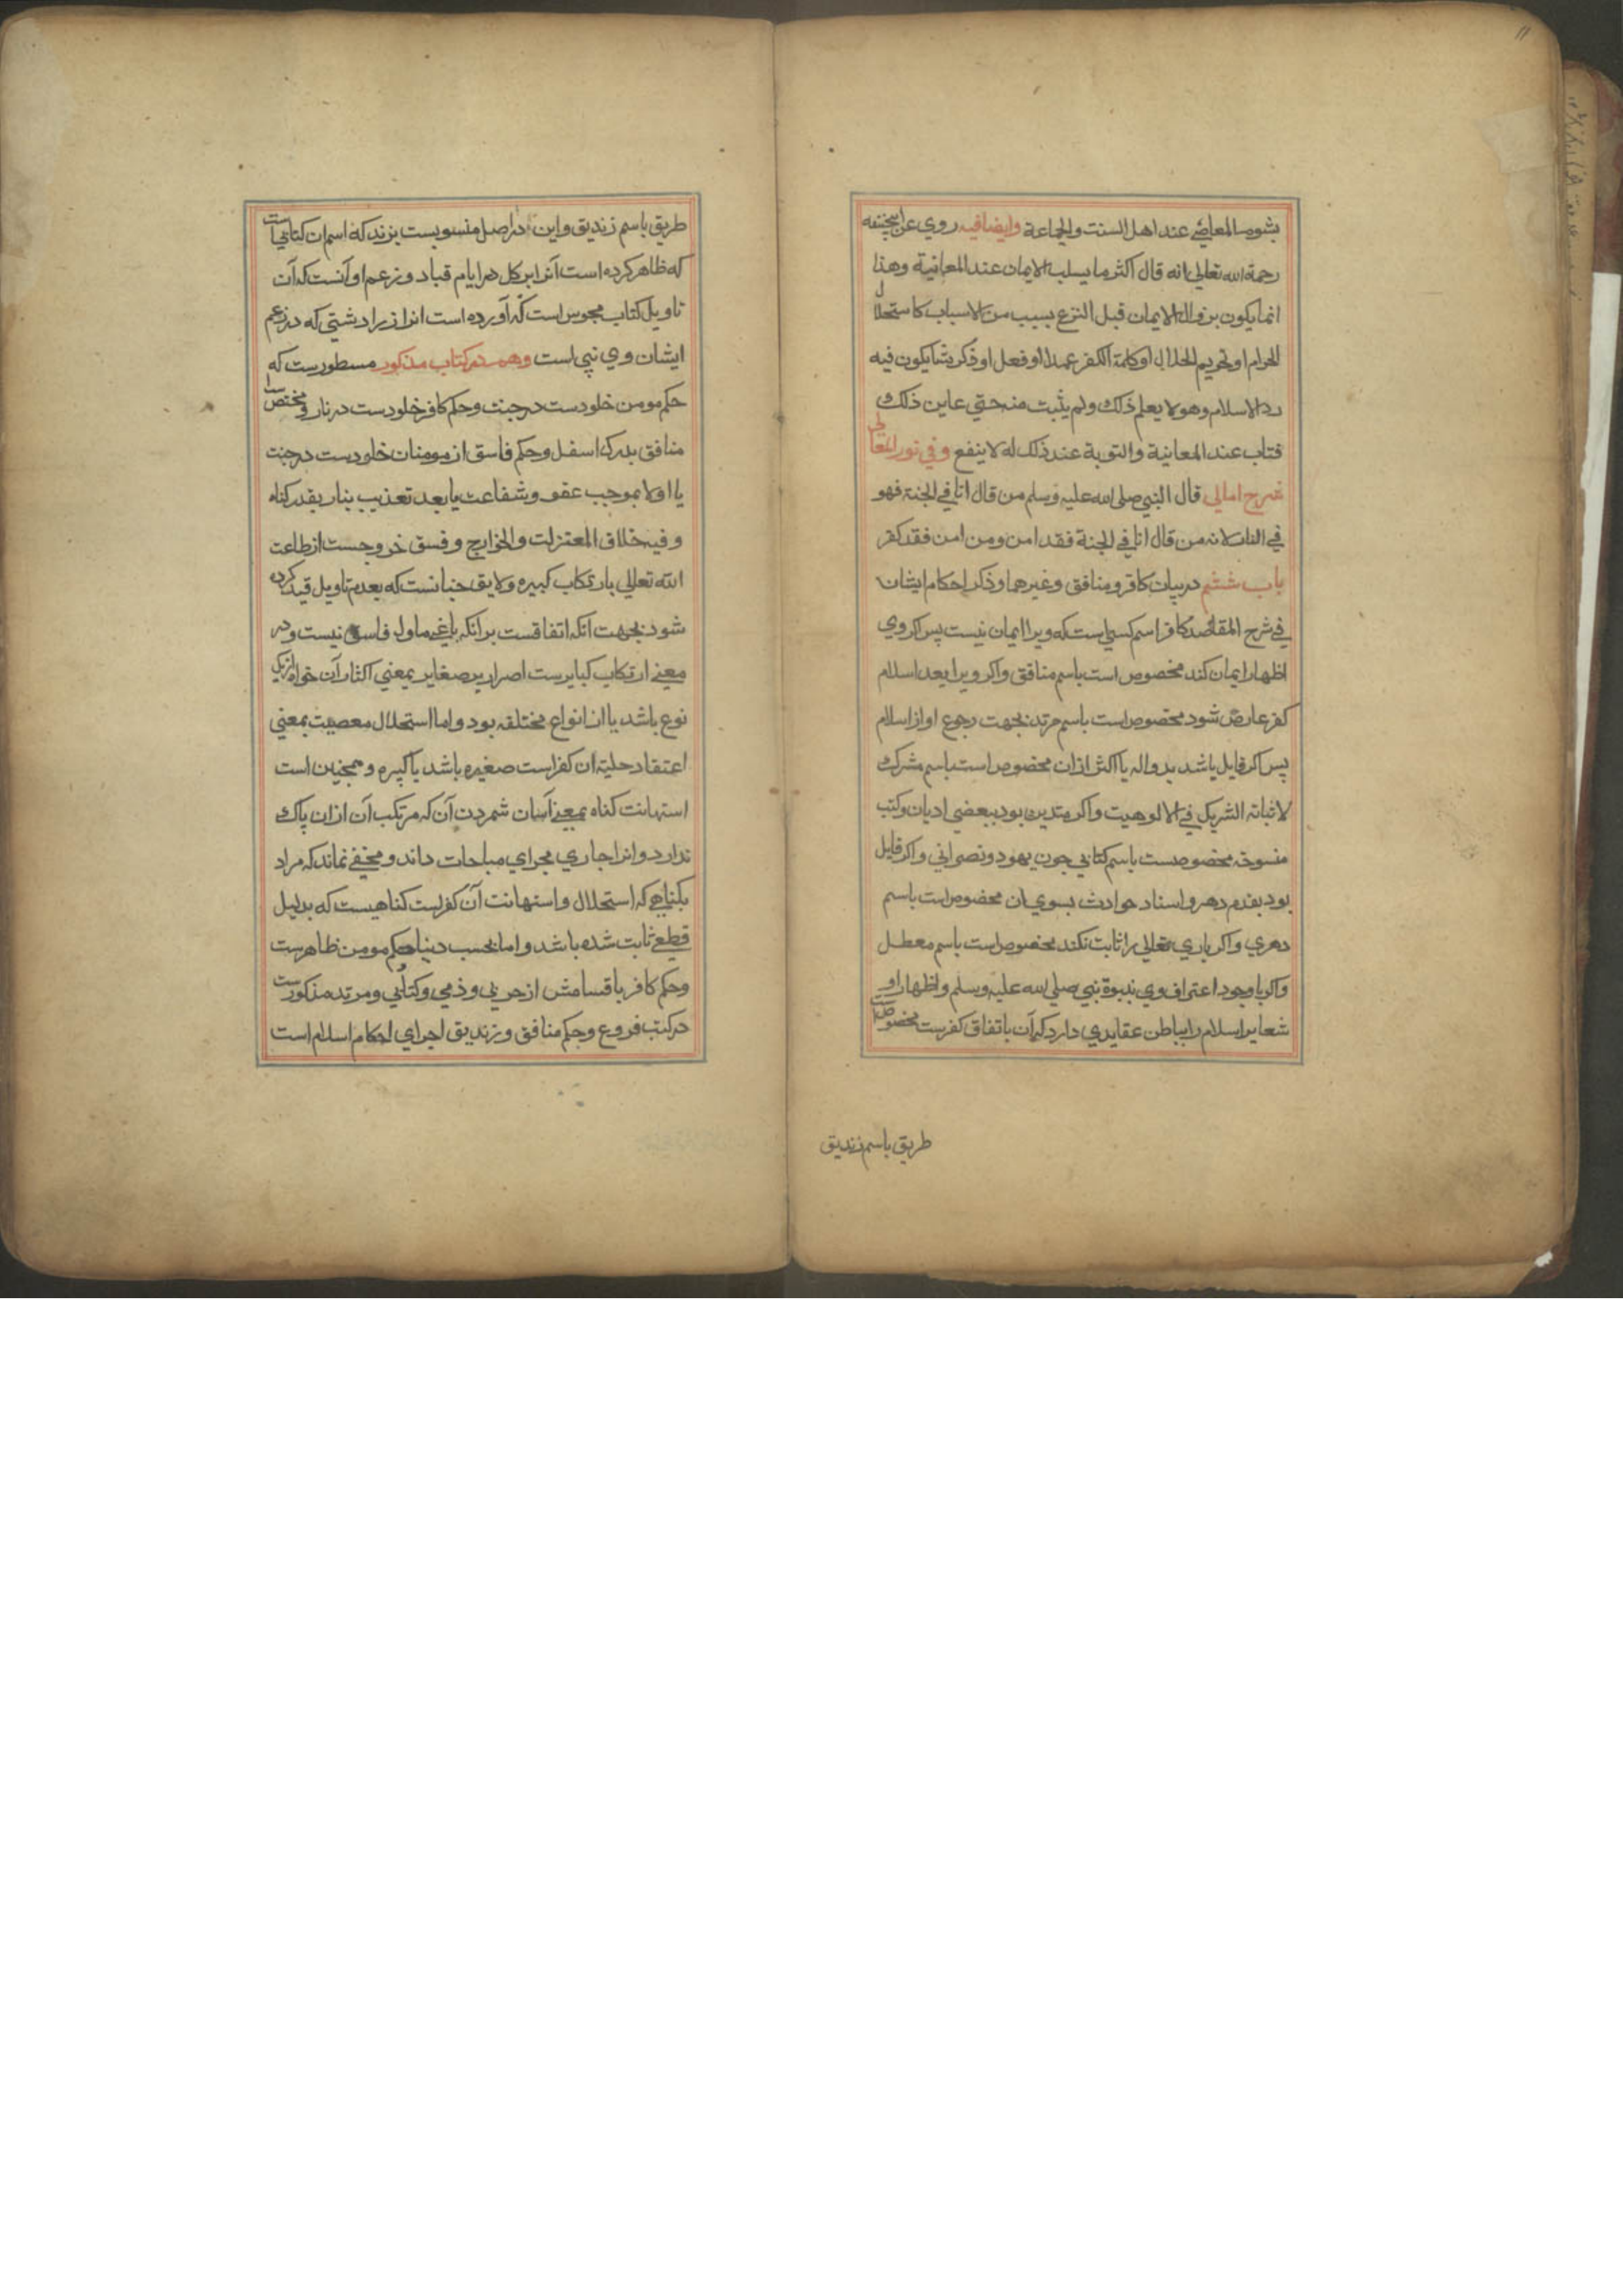 بشوم المعاصي عند اهل السنت والجماعة وايضا فيه روي عن ابيحنيفه
رحمة الله تعالى انه قال اكثر ما يسلب الايمان عند المعانية وهذا
انما يكون بزوال الايمان قبل النزع بسبب من الاسباب كاستحلال
الحرام او تحريم الحلال او كلمة الكفر عمدا او فعل او ذكر شيا يكون فيه
رد الاسلام وهو لا يعلم ذلك ولم يثبت منه حتي عاين ذلك
فتاب عند المعانية والتوبة عند ذلك له لا ينفع وفي نور المعالي
شرح امالي قال النبي صلى الله عليه وسلم من قال انا في الجنة فهو
في النار لانه من قال انا في الجنة فقد امن ومن امن فقد كفر
باب ششم در بيان كافر ومنافق وغيرهما وذكر احكام ايشان
في شرح المقاصد كافر اسم كسي است كه ويرا ايمان نيست پس اكر وي
اظهار ايمان كند مخصوص است باسم منافق واكر ويرا بعد اسلام
كفر عارض شود مخصوص است باسم مرتد بجهت رجوع او از اسلام
پس اكر قايل باشد بدو اله يا اكثر ازان مخصوص است باسم مشرك
لاثباته الشريك في الالوهيت واكر متدين بود ببعضي اديان وكتب
منسوخه مخصوصست باسم كتابي چون يهود ونصراني واكر قايل
بود بقدم دهر و اسناد حوادث بسوي ان مخصوص است باسم
دهري واكر باري تعالى را ثابت نكند مخصوص است باسم معطل
واكر باوجود اعتراف وي بنبوة نبي صلى الله عليه وسلم واظهار او
شعاير اسلام را بباطن عقايدي دارد كه آن باتفاق كفرست مخصوص است
طريق باسم زنديق
طريق باسم زنديق واين در اصل منسوبست بزند كه اسم ان كتابي است
كه ظاهر كرده است آنرا در ايام قباد وزعم او آنست كه آن
تاويل كتاب مجوس است كه آورده است انرا زرادشتي كه در زعم
ايشان وي نبي است وهم در كتاب مذكور مسطورست كه
حكم مومن خلودست در جنت وحكم كافر خلودست در نار ومختص است
منافق بدرك اسفل وحكم فاسق از مومنان خلودست در جنت
يا اولا بموجب عفو وشفاعت يا بعد تعذيب بنار بقدر كناه
وفيه خلاف المعتزلت والخوارج وفسق خروجست از طاعت
الله تعالى بارتكاب كبيره ولايق چنانست كه بعدم تاويل قيد كرده
شود بجهت آنكه اتفاقست برانكه باغي ماول فاسق نيست ودر
معني ارتكاب كبايرست اصرار بر صغاير بمعني اكثار آن خواه از يك
نوع باشد يا از انواع مختلفه بود واما استحلال معصيت بمعني
اعتقاد حليت ان كفر است صغيره باشد يا كبيره وهمچنين است
استهانت كناه بمعني آسان شمردن آن كه مرتكب آن ازان باك
ندارد وانرا جاري مجراي مباحات داند ومخفي نماند كه مراد
بكناهي كه استحلال واستهانت آن كفرست كناهيست كه بدليل
قطعي ثابت شده باشد واما بحسب دنيا حكم مومن ظاهرست
وحكم كافر باقسامش از حربي وذمي وكتابي ومرتد مذكورست
در كتب فروع وحكم منافق وزنديق اجراي احكام اسلام است